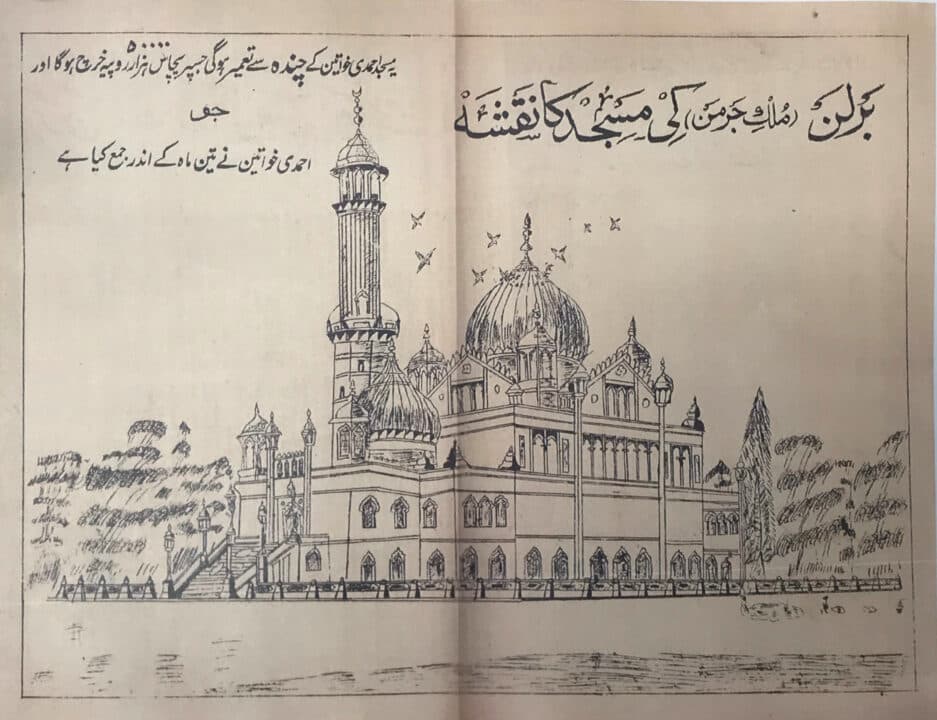 برلن (ملکِ جرمن) کی مسجد کا نقشہ
یہ مسجد احمدی خواتین کے چندہ سے تعمیر ہوگی جسپر پچاس ہزار ۵۰۰۰۰ روپیہ خرچ ہوگا اور
جو
احمدی خواتین نے تین ماہ کے اندر جمع کیا ہے